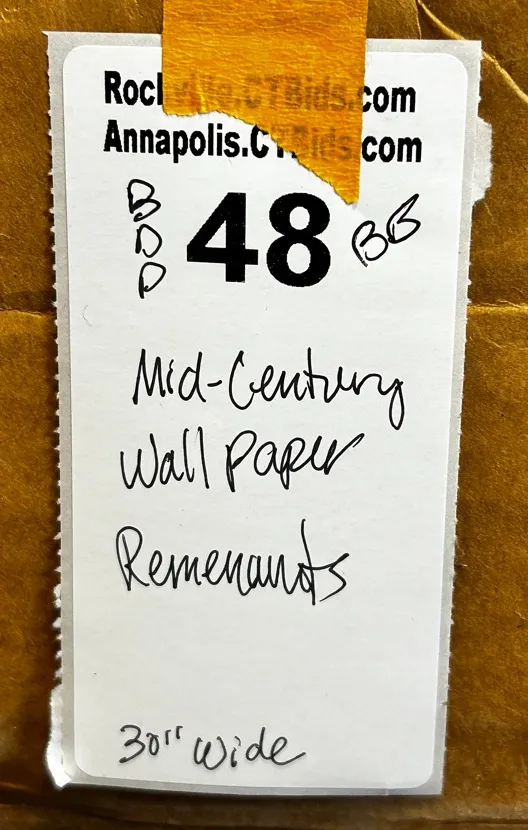 Rockville.CTBids.com
Annapolis.CTBids.com
BDP 48 BB
Mid-Century
Wall paper
Remenants
30" wide